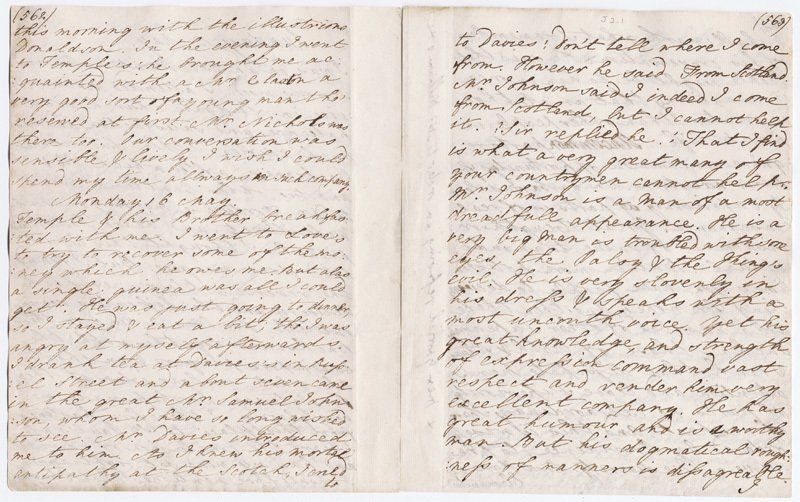 (562)
this morning with the illustrious
Donaldson. In the evening I went
to Temple's; he brought me ac
:quainted with a Mr Claxton a
very good sort of a young man tho'
reserved at first. Mr Nichols was
there too. Our conversation was
sensible & lively. I wish I could
spend my time allways in such company.
Monday 16 May.
Temple & his Brother breakfas
:ted with me. I went to Love's
to try to recover some of the mo:
:ney which he owes me. But alas
a single guinea was all I could
get. He was just going to dinner
so I stayed & eat a bit, tho' I was
angry at myself afterwards.
I drank tea at Davies's in Rus:
:sel Street and about seven came
in the great Mr Samuel John:
:son, whom I have so long wished
to see. Mr Davies introduced
me to him. As I knew his mortal
antipathy at the Scotch, I cried
to
(563)
to Davies; don't tell where I come
from. However he said From Scotland.
Mr Johnson said I indeed I come
from Scotland, but I cannot help
it. Sir replied he: That I find
is what a very great many of
your countrymen cannot help.
Mr Johnson is a Man of a most
dreadfull appearance. He is a
very big Man is troubled with sore
eyes, the Palsy & the King's
evil. He is very slovenly in
his dress & speaks with a
most uncouth voice. Yet his
great knowledge, and strength
of expression command vast
respect and render him very
excellent company. He has
great humour and is a worthy
man. But his dogmatical rough:
:ness of manners is disagreable.